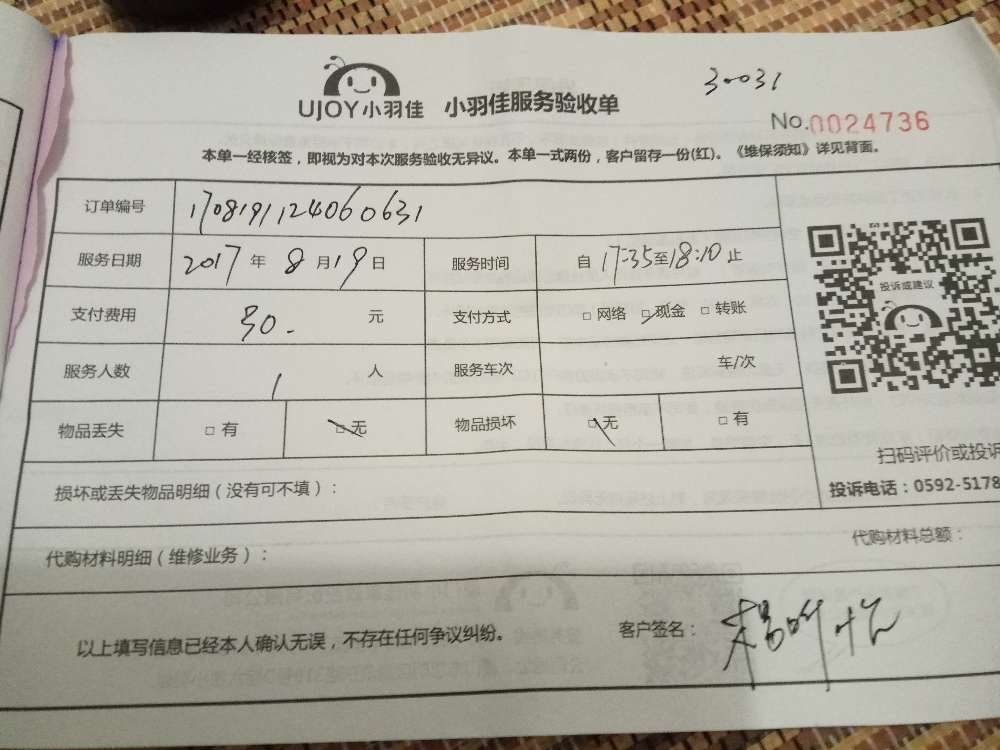 30031
UJOY小羽佳 小羽佳服务验收单
No.0024736
本单一经核签，即视为对本次服务验收无异议。本单一式两份，客户留存一份(红)。《维保须知》详见背面。
订单编号 170819112406 0631
服务日期 2017 年 8 月 19 日 服务时间 自 17:35 至 18:10 止
支付费用 30. 元 支付方式 □ 网络 □ 现金 □ 转账
服务人数 1 人 服务车次 车/次
物品丢失 □ 有 □ 无 物品损坏 □ 无 □ 有
投诉或建议
扫码评价或投诉
投诉电话：0592-5178
损坏或丢失物品明细（没有可不填）：
代购材料明细（维修业务）： 代购材料总额：
以上填写信息已经本人确认无误，不存在任何争议纠纷。 客户签名：